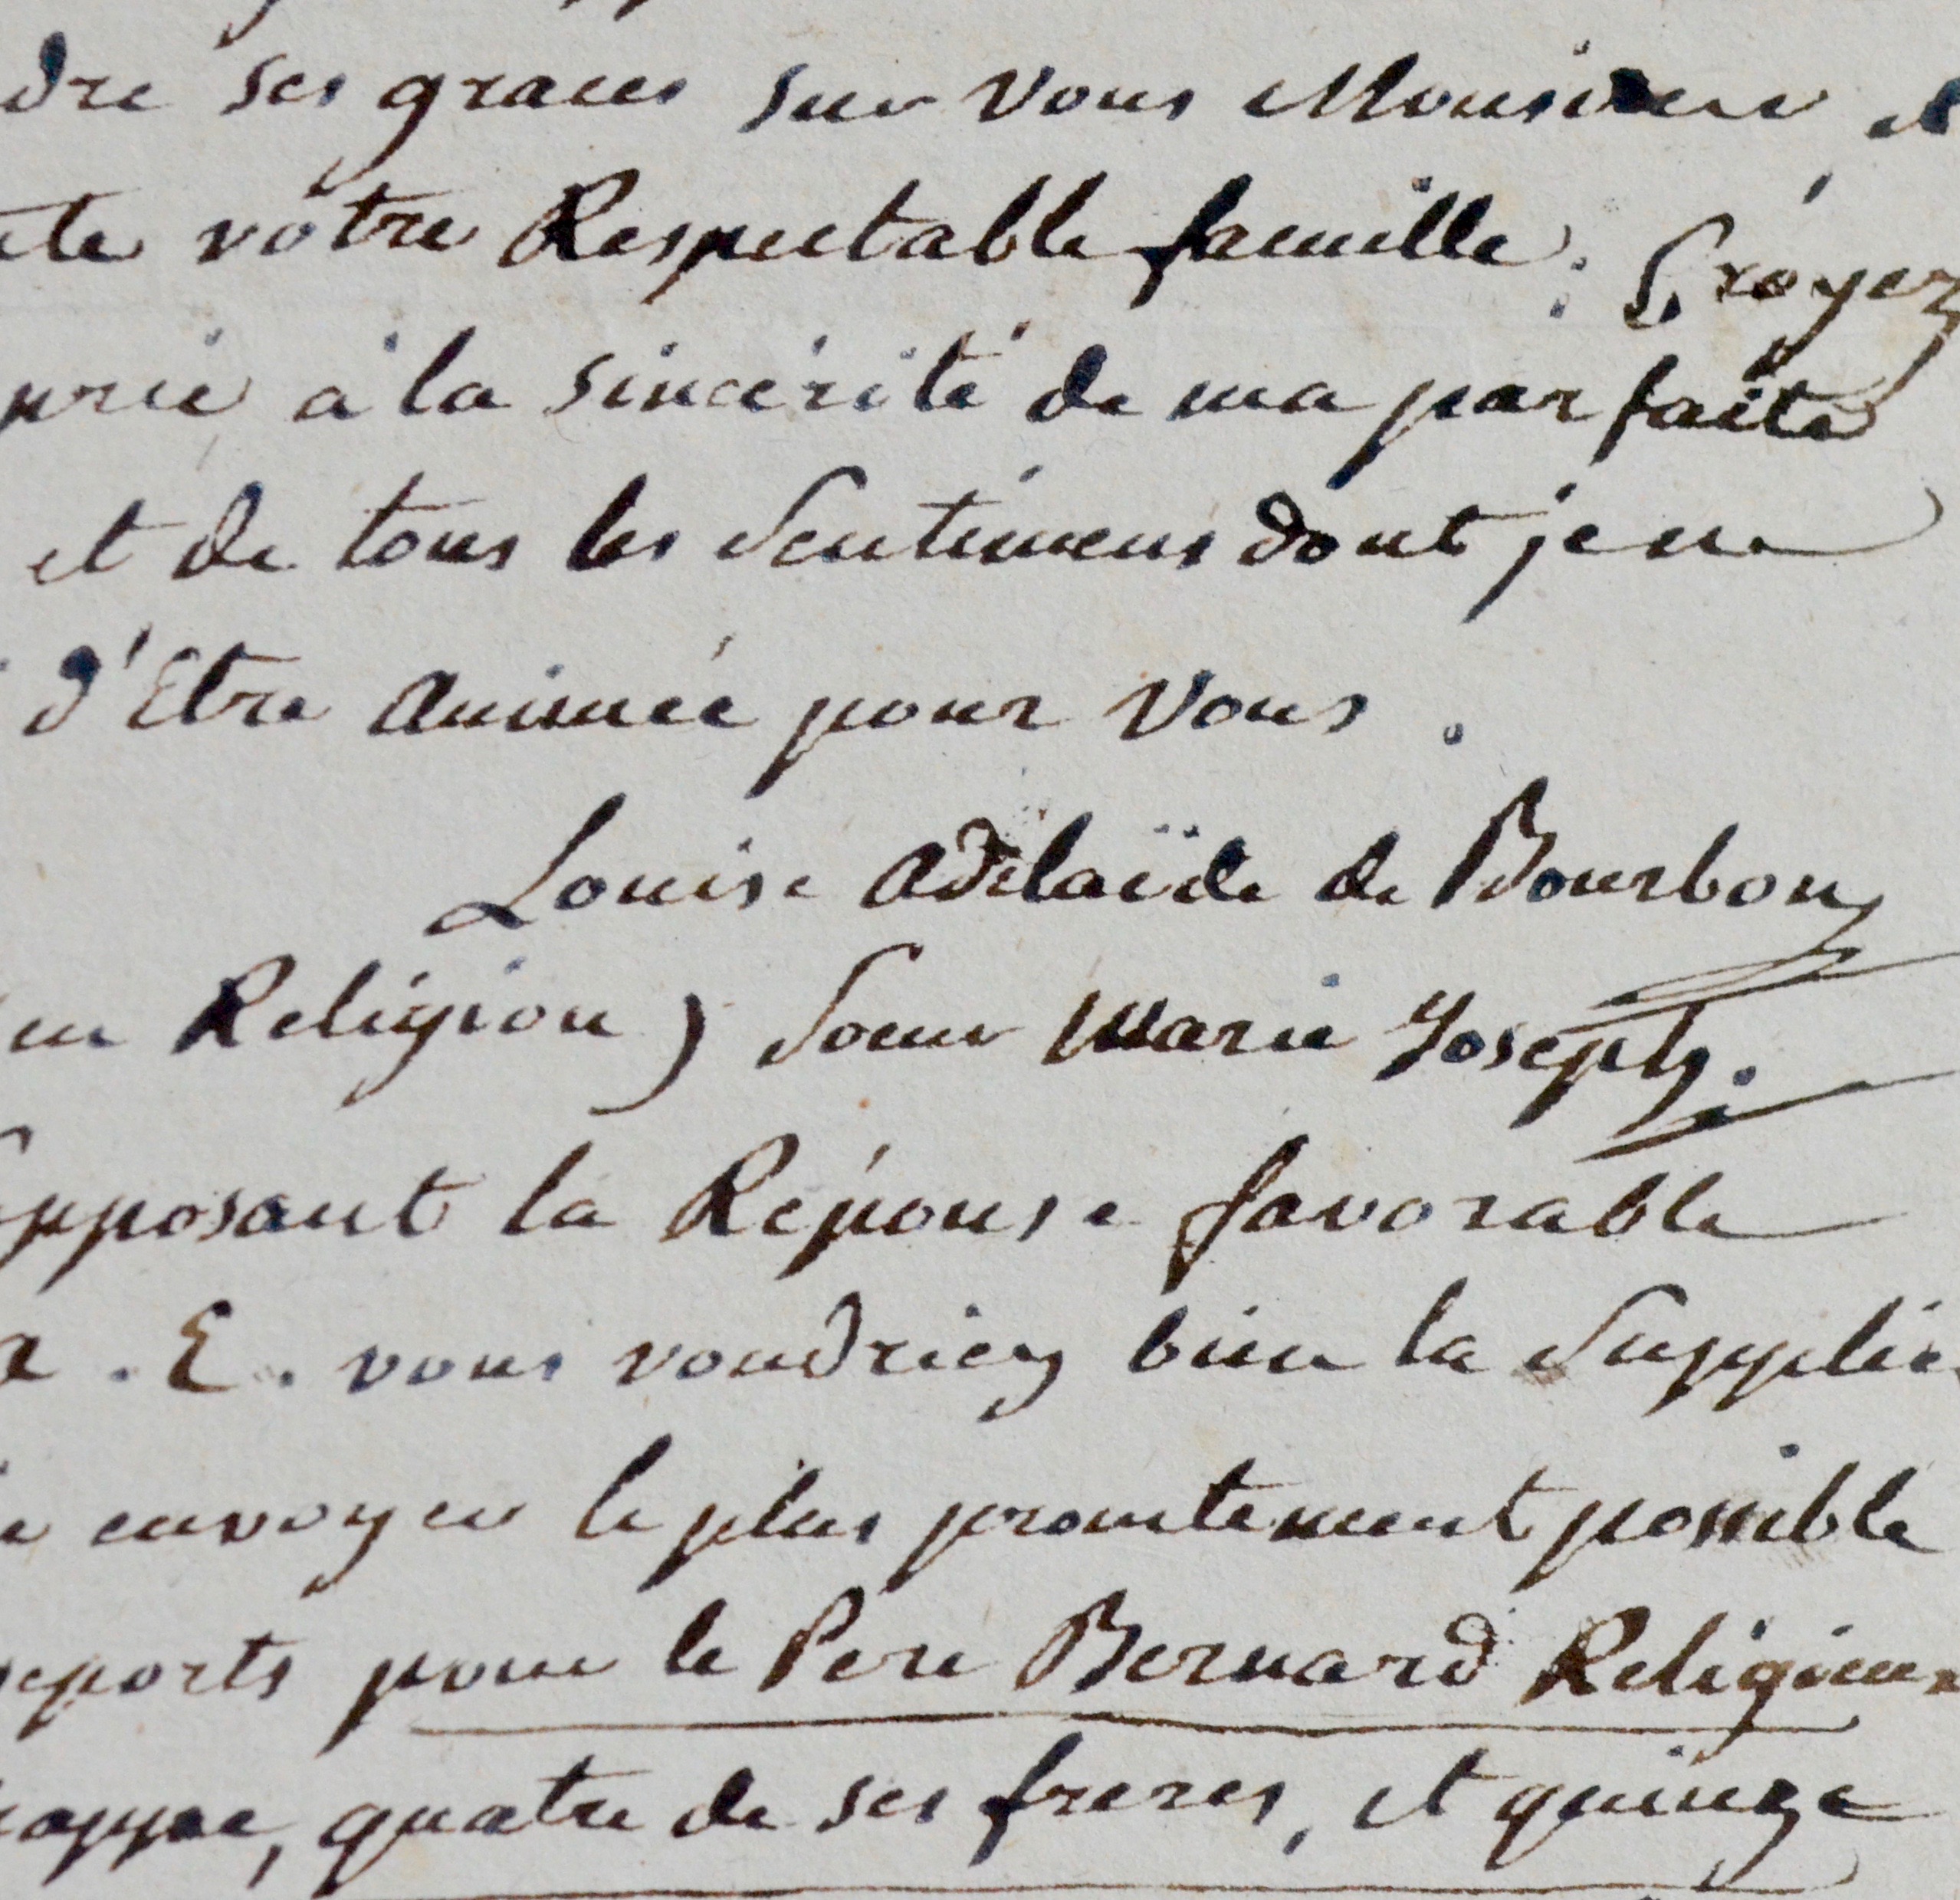 dre ses graces sur vous Monsieur et
votre Respectable famille. Croyez
prie à la sincérité de ma parfaite
et de tous les Sentimens dont je ne
d'Etre animée pour vous.
Louise adélaïde de Bourbon
en Religion) Soeur Marie Joseph.
pposant la Réponse favorable
. E. vous voudriez bien la Supplie
envoyer le plus promtement possible
ports pour le Pere Bernard Religieux
rappe, quatre de ses freres, et quinze